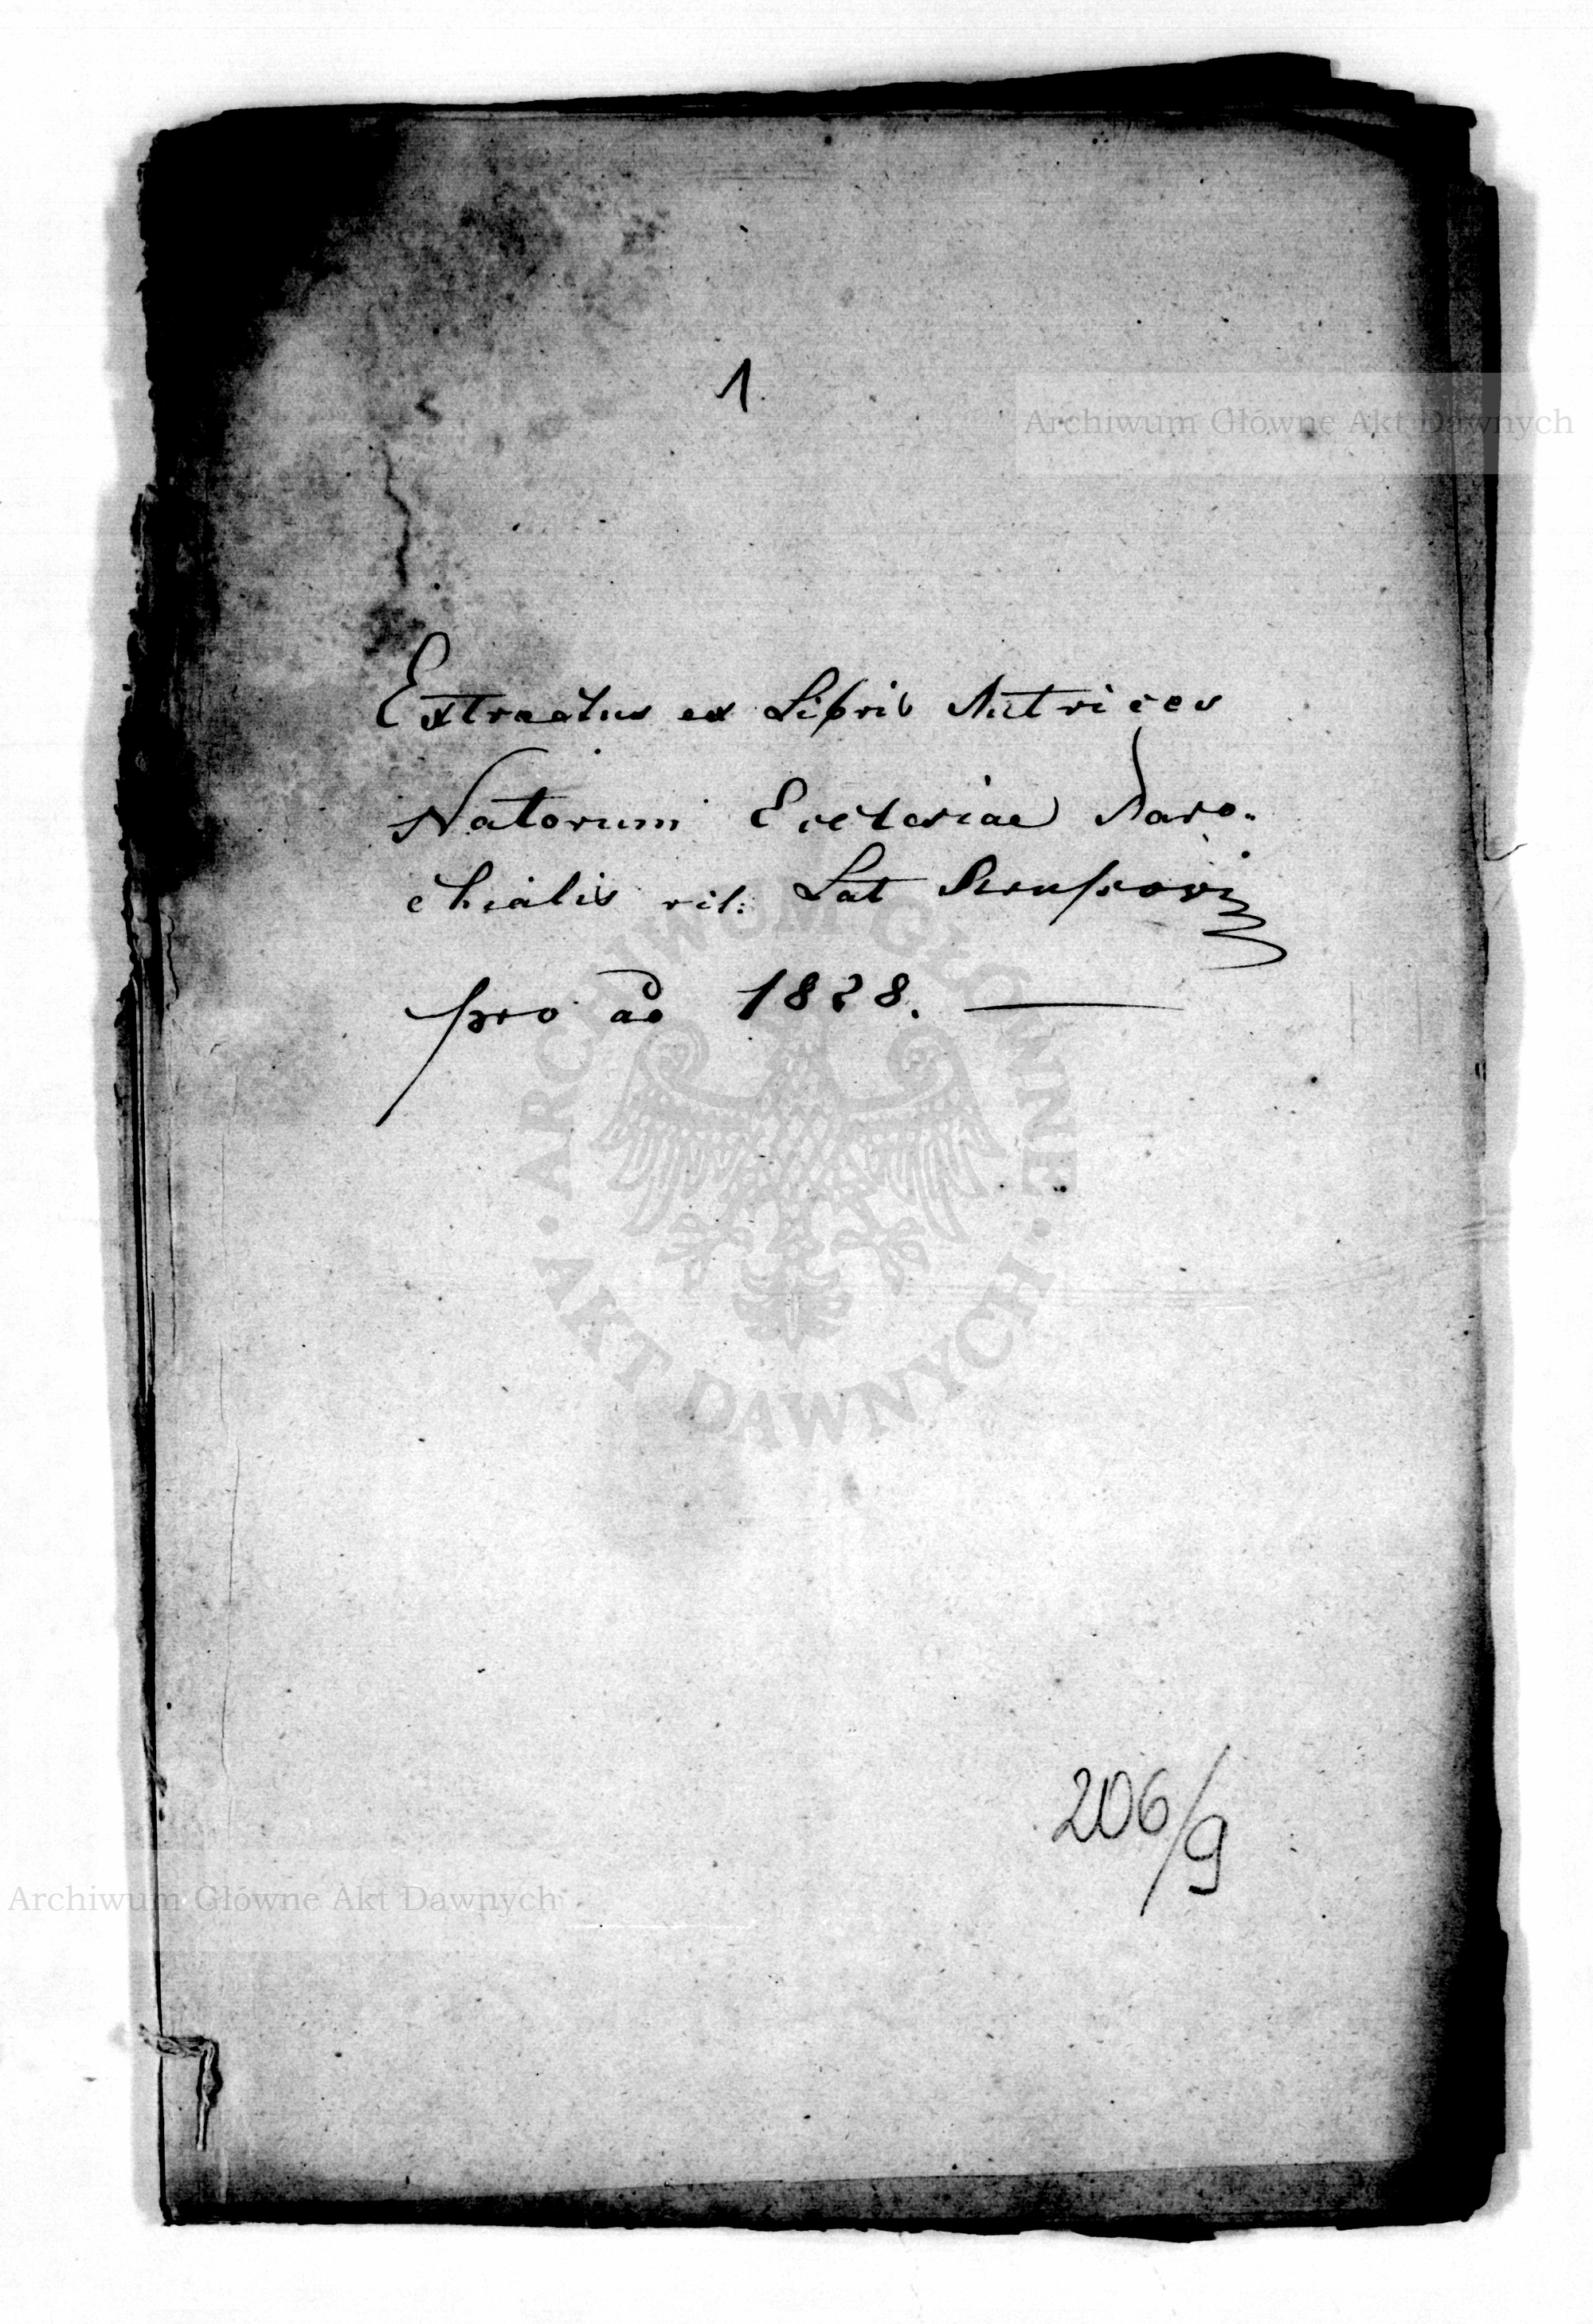 1.
Archiwum Główne Akt Dawnych
Extractus ex Libris Mutrices
Natorum Ecclesiae Paro-
chialis rit: Lat
pro ao 1828.
ARCHIWUM GŁÓWNE
AKT DAWNYCH
206/9
Archiwum Główne Akt Dawnych